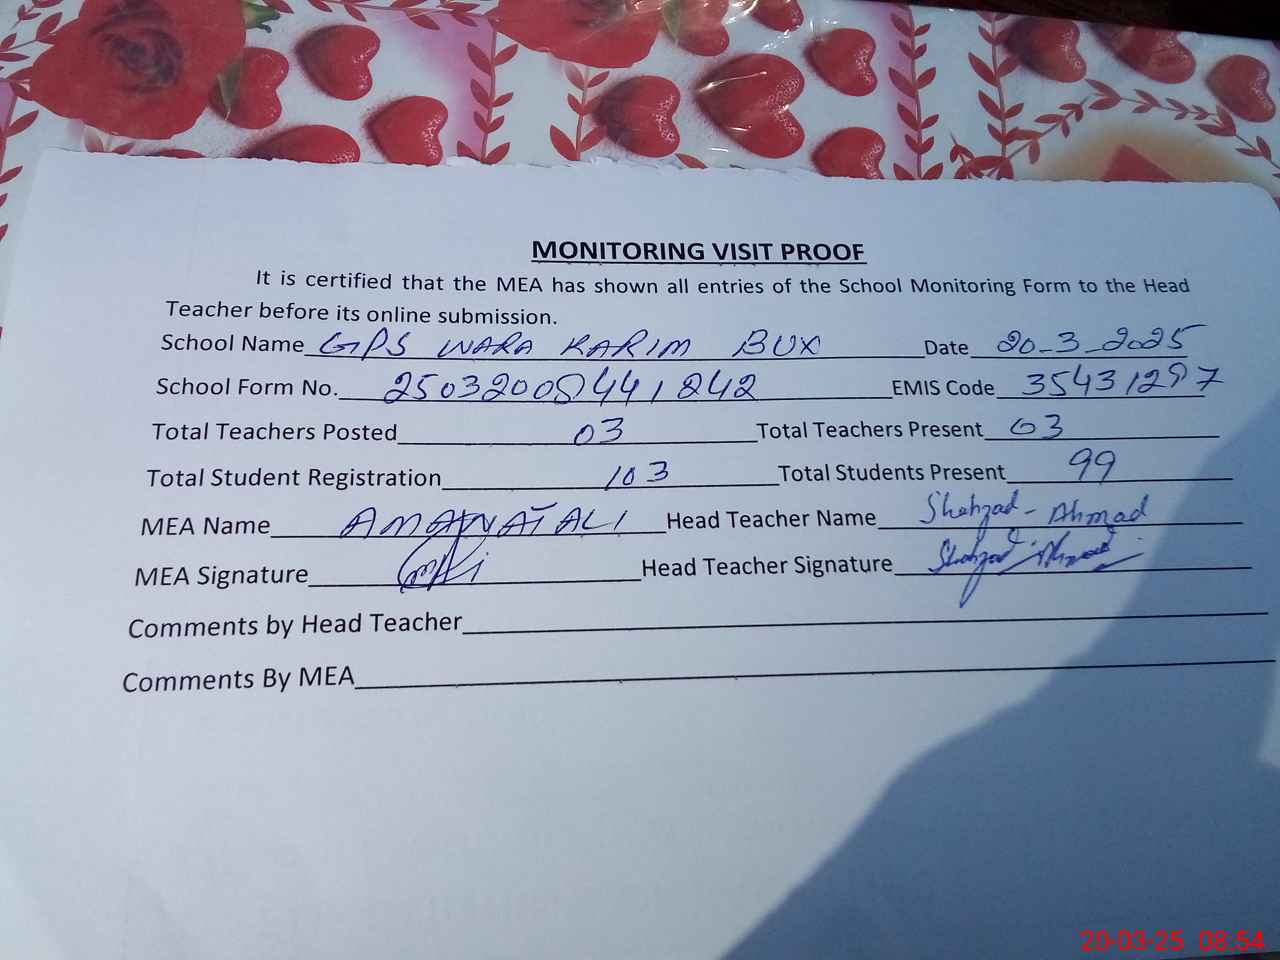 MONITORING VISIT PROOF
It is certified that the MEA has shown all entries of the School Monitoring Form to the Head
Teacher before its online submission.
School Name GPS WARA KARIM BUX Date 20-3-2025
School Form No. 2503200844 1242 EMIS Code 35431297
Total Teachers Posted 03 Total Teachers Present 03
Total Student Registration 103 Total Students Present 99
MEA Name AMANAT ALI Head Teacher Name Shahzad - Ahmad
MEA Signature Head Teacher Signature Shahzad Ahmad
Comments by Head Teacher
Comments By MEA
20-03-25 08:54